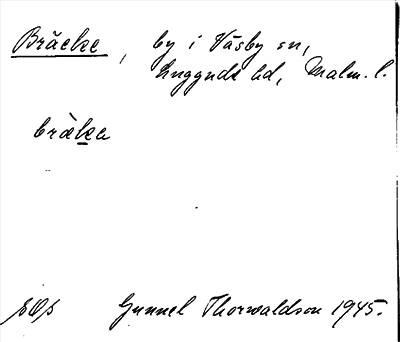 Bräcke, by i Väsby sn,
Luggude hd, Malm. l.
bràka
SOf Gunnel Thorwaldson 1945.